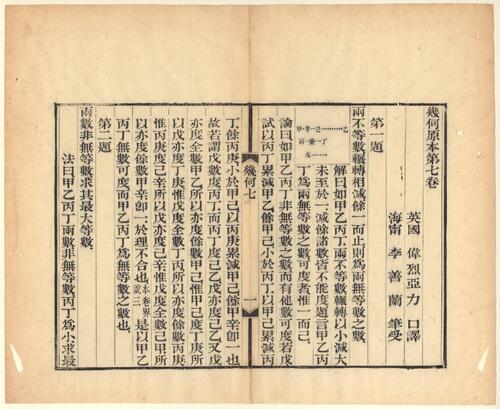 幾何原本第七卷
英國 偉烈亞力 口譯
海甯 李善蘭 筆受
第一題
兩不等數輾轉相減餘一而止則爲兩無等數之數
甲 辛 己 乙
丙 庚 丁
戊
解曰如甲乙丙丁兩不等數輾轉以小減大
未至於一減餘諸數皆不能度題言甲乙丙
丁爲兩無等數之數可度者惟一而己
論曰如甲乙丙丁非無等數之數而有他數可度若戊
試以丙丁累減甲乙餘甲己小於丙丁以甲己累減丙
幾何七 一
丁餘丙庚小於甲己以丙庚累減甲己餘甲辛卽一也
故若謂戊數度丙丁而丙丁度己乙又戊
亦度全數甲乙所以亦度餘數甲己惟甲己度丁庚所
以戊亦度丁庚惟戊度全數丁丙所以亦度餘數丙庚
惟丙庚度己辛所以戊亦度己辛惟戊度全數甲己所
以亦度餘數甲辛卽一於理不合也本卷界說三是以甲乙
丙丁無數可度而甲乙丙丁爲無等數之數也
第二題
兩數非無等數求其最大等數
法曰甲乙丙丁兩數非無等數丙丁爲小求最